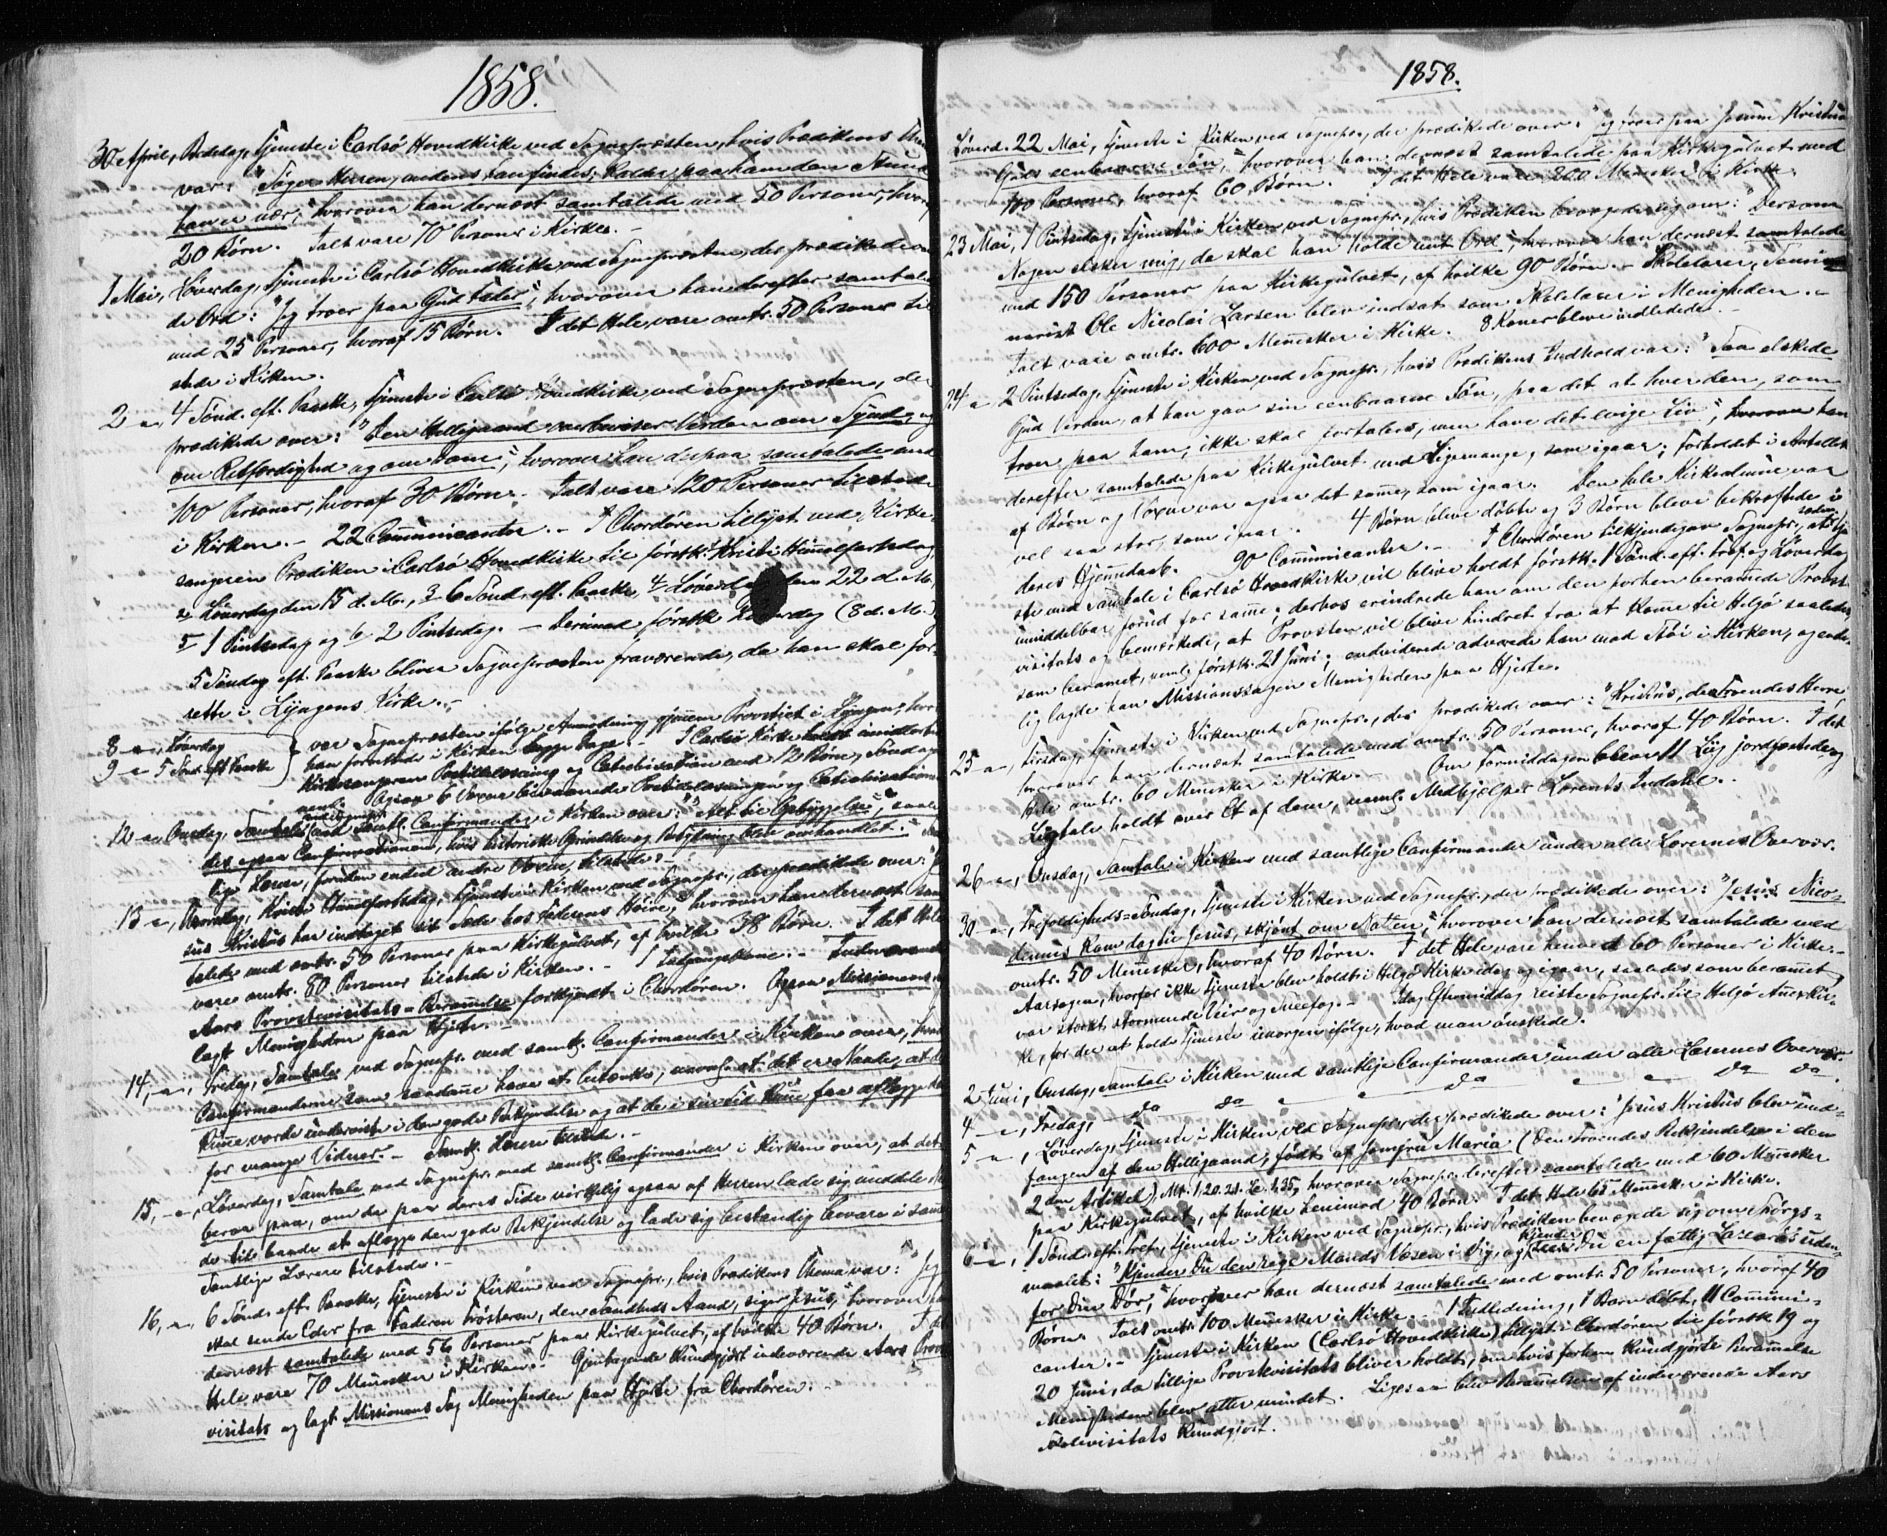 1858.
30 April, Bededag, Tjeneste i Carlsö Hovedkirke ved Sognepræsten, hvis Prædikens Thema
var: "Söger Herren, medens han findes; kalder paa ham den Stund
han er nær," hvorover han dernæst samtalede med 50 Personer, hvoraf
20 Börn. Ialt vare 70 Personer i Kirke. –
1 Mai, Löverdag, Tjeneste i Carlsö Hovedkirke ved Sognepræsten, der prædikede over
de Ord: "Jeg troer paa Gud Fader", hvorover han derefter samtalede
med 25 Personer, hvoraf 15 Börn. I det Hele vare omtr. 50 Personer til
stede i Kirken.
2 –, 4 Sönd. eft. Paaske, Tjeneste i Carlsö Hovedkirke ved Sognepræsten, der
prædikede over: "Den Helligaand overbeviser Verden om Synd, og
om Retfærdighed og om Dom", hvorover han derpaa samtalede med
100 Personer, hvoraf 30 Börn. Ialt vare 120 Personer tilstede
i Kirken. – 22 Communicanter. – I Chordören tillyst ved Kirke-
sangeren Prædiken i Carlsö Hovedkirke til förstk. 1 Kristi Himmelfartsdag
2 Löverdag den 15 d. M., 3 6 Sönd. eft. Paaske, 4 Löverdag den 22 d. M.
5 1 Pintsedag og 6 2 Pintsedag. – Derimod förstk. Löverdag (8 d. M.)
5 Söndag eft. Paaske bliver Sognepræsten fraværende, da han skal for-
rette i Lyngens Kirke. –
8 –, Löverdag
9 – 5 Sönd. eft. Paaske
var Sognepræsten ifölge Anmodning gjennem Provstiet i Lyngen, hvor
han forrettede i Kirken begge Dage. – I Carlsö Kirke holdt imidlertid
Kirkesangeren Postillelæsning og Catechisation med 12 Börn, Söndagen
Ogsaa 6 Voxne bivaanede Postillelæsningen og Catechisationen
12 –, Onsdag, Samtale med samtl. Confirmander i Kirken over: "Alt til Opbyggelse",
ogsaa Confirmationen, hvis historiske Oprindelse og Betydning blev omhandlet.
Lærere, foruden endeel andre Voxne, tilstede. –
13 –, Torsdag, Kristi Himmelfartsdag, Tjeneste i Kirken ved Sognepr., der prædikede over: "Je-
sus Kristus har indtaget sit Sæde hos Faderens Höire", hvorover han dernæst sam-
talede med omtr. 50 Personer paa Kirkegulvet, af hvilke 38 Börn. I det Hele
vare omtr. 80 Personer tilstede i Kirken. – 1 Indgangskone. – Indeværende
Aars Provstevisitats-Berammelse forkyndt i Chordören. Ogsaa Missionens
lagt Menigheden paa Hjerte. –
14, –, Fredag, Samtale ved Sognepr. med samtl. Confirmander i Kirken over, hvad
Confirmanderne som saadanne have at betænke, nemlig at det er Naade, at de
kunne vorde underviste i den gode Bekjendelse og at de i sin Tid kunne faa aflægge den
for mange Vidner. – Samtl. Lærere tilstede. –
15, –, Löverdag, Samtale ved Sognepr. med samtl. Confirmander i Kirken over, at det
beroer paa, om de paa deres Side virkelig ogsaa af Herren lade sig meddele
at aflægge den gode Bekjendelse og lade sig bestandig bevare i samme
Samtlige Lærere tilstede. –
16, –, 6 Sönd. eft. Paaske, Tjeneste i Kirken ved Sognepr., hvis Prædikens Thema var: "Jeg
skal sende Eder fra Faderen Trösteren, den Sandheds Aand, siger Jesus," hvorover han
dernæst samtalede med 56 Personer paa Kirkegulvet, af hvilke 40 Börn. I det
Hele vare 70 Mennesker i Kirken. – Gjentagende kundgjort indeværende Aars Provste-
visitats og lagt Missionens Sag Menigheden paa Hjerte fra Chordören. –
1858.
Löverd. 22 Mai, Tjeneste i Kirken ved Sognepr., der prædikede over: "Jeg troer paa Jesum Kristum
Guds eenbaarne Sön," hvorover han dernæst samtalede paa Kirkegulvet med
100 Personer, hvoraf 60 Börn. I det Hele vare 200 Mennesker i Kirke.
23 Mai, 1 Pintsedag, Tjeneste i Kirken ved Sognepr., hvis Prædiken bevægede sig om: "Dersom
Nogen elsker mig, da skal han holde mit Ord", hvorover han dernæst samtalede
med 150 Personer paa Kirkegulvet, af hvilke 90 Börn. – Skolelærer, Semi-
narist Ole Nicolai Larsen blev indsat som Skolelærer i Menigheden. –
Ialt vare omtr. 600 Mennesker i Kirke. 8 Koner bleve indledede. –
24 – 2 Pintsedag, Tjeneste i Kirken ved Sognepr., hvis Prædikens Indhold var: "Saa elskede
Gud Verden, at han gav sin eenbaarne Sön, paa det at hver den, som
troer paa ham, ikke skal fortabes, men have det evige Liv", hvorover han
derefter samtalede paa Kirkegulvet med ligemange, som igaar; Forholdet i Antallet
af Börn og Voxne var ogsaa det samme, som igaar. Den hele Kirkealmue var
vel saa stor, som igaar. 4 Börn bleve döbte og 3 Börn bleve bekræftede i
deres Hjemmedaab. 90 Communicanter. – I Chordören tilkjendegav Sognepr., at Tjene-
ste med Samtale i Carlsö Hovedkirke vil blive holdt förstk. 1 Sönd. eft. Tref. og Löverdag
umiddelbar forud for samme; derhos erindrede han om den forhen berammede Provste-
visitats og bemærkede, at Provsten vil blive hindret fra at komme til Helgö saaledes,
som berammet, neml. förstk. 21 Juni; endvidere advarede han mod Stöi i Kirken, og ende-
lig lagde han Missionssagen Menigheden paa Hjerte.
25 –, Tirsdag, Tjeneste i Kirken ved Sognepr., der prædikede over: "Kristus, de Troendes Herre",
hvorover han dernæst samtalede med omtr. 50 Personer, hvoraf 40 Börn. I det
Hele omtr. 60 Mennesker i Kirke. – Om Formiddagen bleve 11 Liig jordfæstede og
Ligtale holdt over Et af dem, neml. Medhjelper Lorents Indahl. –
26 –, Onsdag, Samtale i Kirken med samtlige Confirmander under alle Lærernes Overvær.
30 –, Trefoldigheds-Söndag, Tjeneste i Kirken ved Sognepr., der prædikede over: "Jesus Nico-
demus kom dog til Jesus, skjönt om Natten", hvorover han dernæst samtalede med
omtr. 50 Mennesker, hvoraf 40 Börn. I det Hele vare henved 60 Personer i Kirke. –
Aarsagen, hvorfor ikke Tjeneste blev holdt i Helgö Kirke idag og igaar, saaledes som berammet,
var stærk, stormende Veir og Sneefog. – Idag Eftermiddag reiste Sognepr. til Helgö Annexkir-
ke, for der at holde Tjeneste imorgen ifölge, hvad man önskede.
2 Juni, Onsdag, Samtale i Kirken med samtlige Confirmander under alle Lærernes Overvær.
4 –, Fredag, – Do Do – – Do – – Do Do.
5 –, Löverdag, Tjeneste i Kirken ved Sognepr., der prædikede over: "Jesus Kristus blev und-
fangen af den Helligaand, födt af Jomfru Maria (Den Troendes Bekjendelse i den
2den Artikel) Mt. 1,20.21. Lc. 1,35, hvorover Sognepr. derefter samtalede med 60 Mennesker
paa Kirkegulvet, af hvilke henimod 40 Börn. I det Hele 65 Mennesker i Kirke.
6 –, 1 Sönd. eft. Tref., Tjeneste i Kirken ved Sognepr., hvis Prædiken bevægede sig om Spörgs-
maalet: "Kjender Du den rige Mands Væsen i Dig, og kjender Du en fattig Lazarus uden-
for Din Dör," hvorover han dernæst samtalede med omtr. 50 Personer, hvoraf 40
Börn. Ialt omtr. 100 Mennesker i Kirke. – 1 Indledning, 1 Barn döbt, 11 Communi-
canter. – Tjeneste i Kirken (Carlsö Hovedkirke) tillyst i Chordören til förstk. 19 og
20 Juni, da tillige Provstevisitats bliver holdt, om hvis forhen kundgjorte Berammelse
Menigheden blev atter mindet. Ligesaa blev Berammelsen af indeværende Aars
Skolevisitats kundgjort.